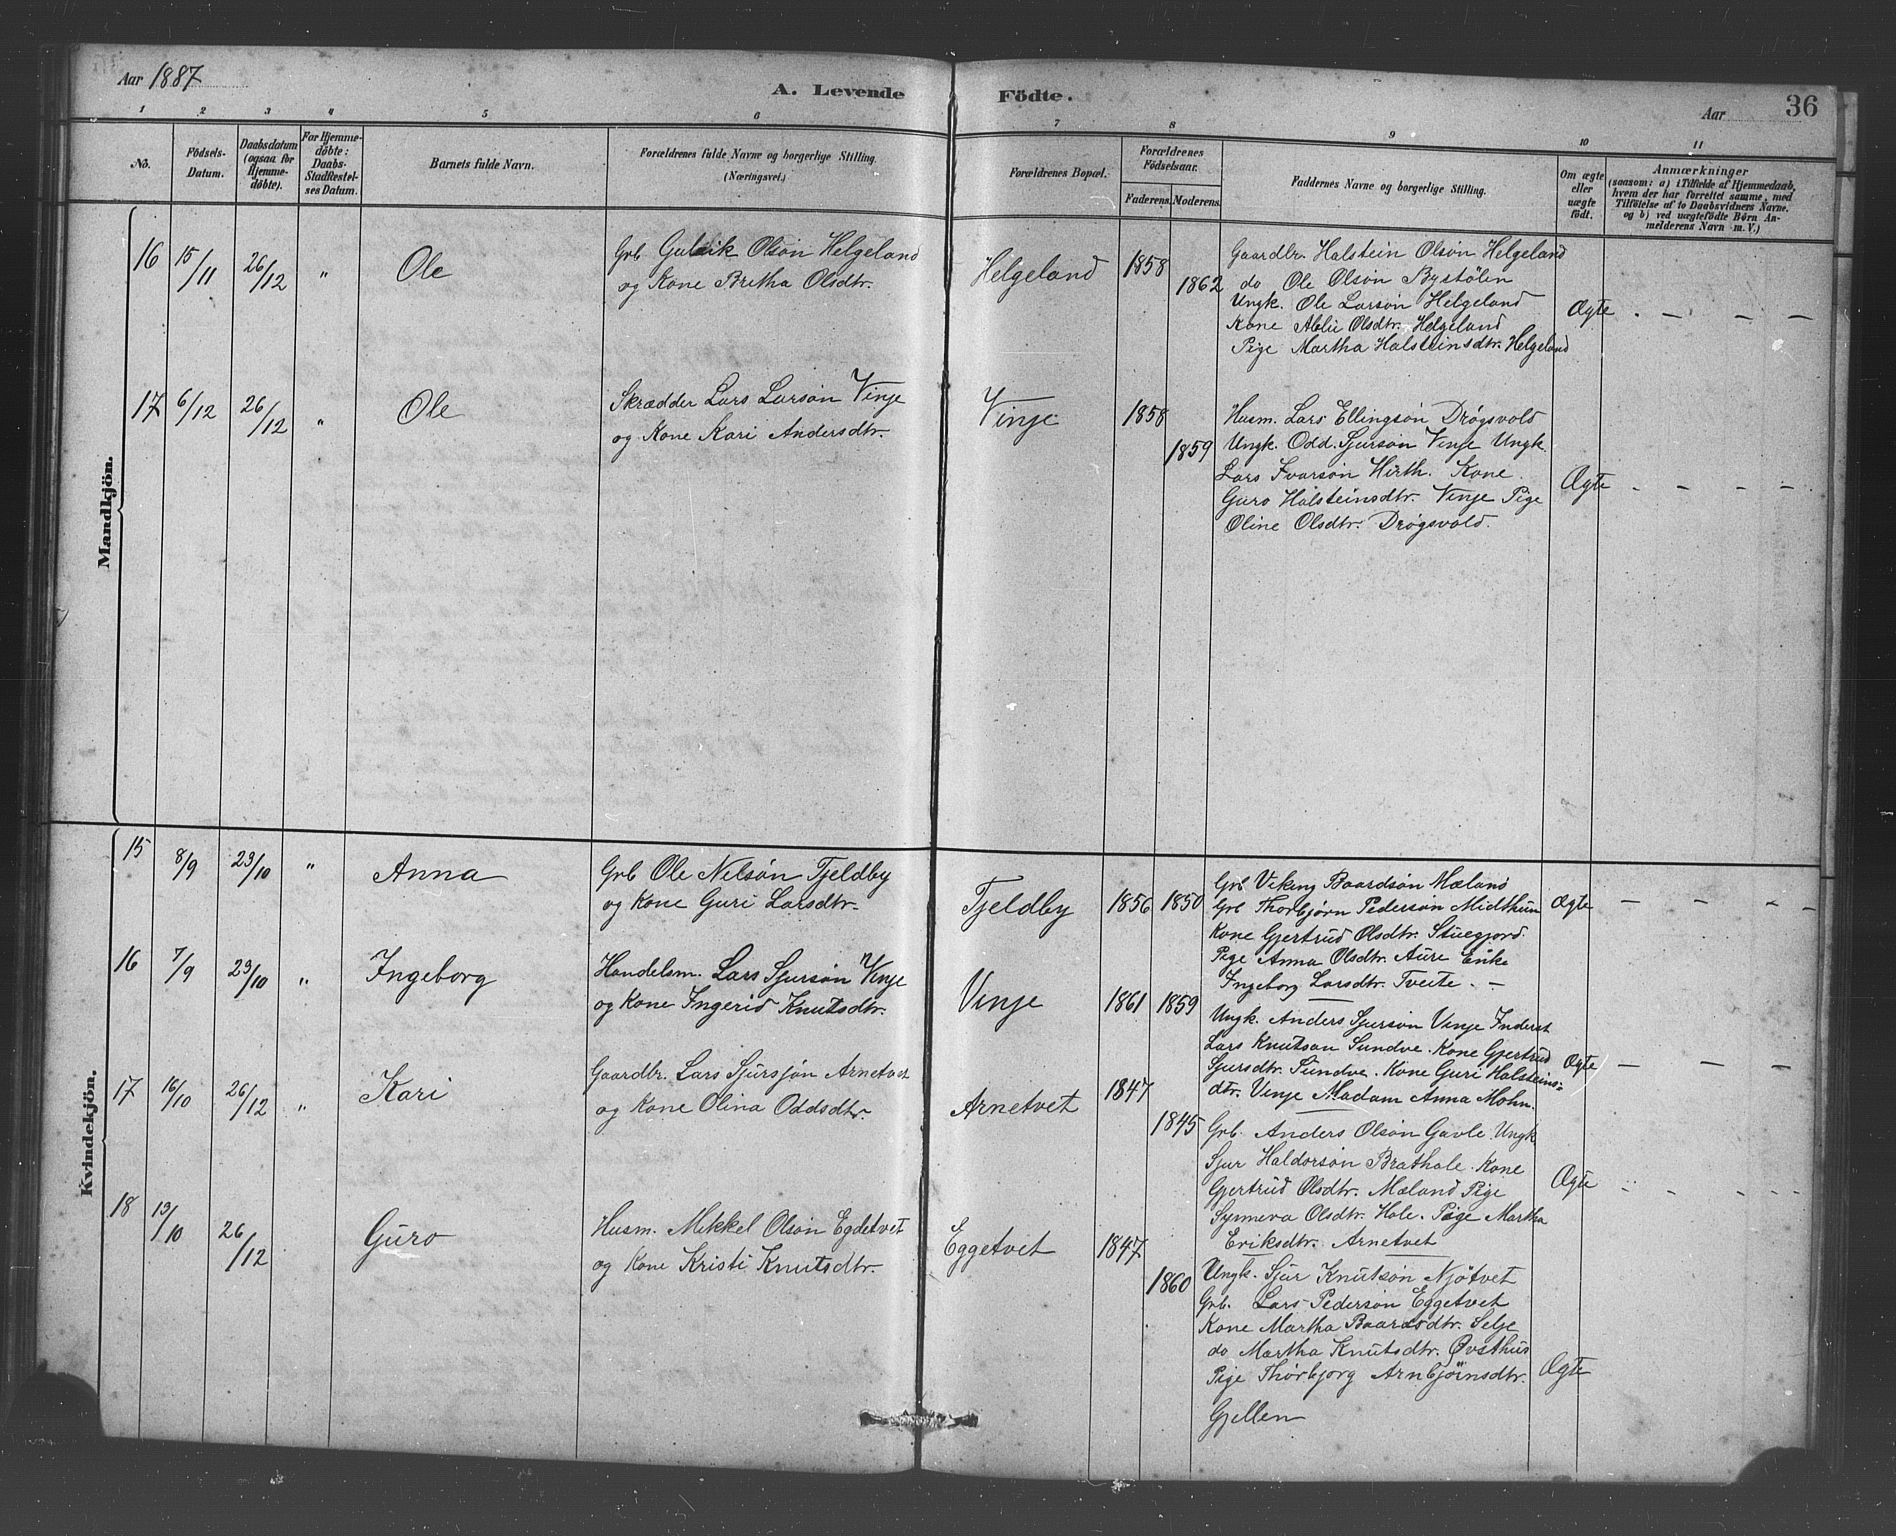 Aar 1887
A. Levende Födte.
Aar 36
1 2 3 4 5 6 7 8 9 10 11
No.
Födsels-Datum.
Daabsdatum (ogsaa for Hjemmedöbte).
For Hjemmedöbte: Daabs-Stadfæstelses Datum.
Barnets fulde Navn.
Forældrenes fulde Navne og borgerlige Stilling. (Næringsvei.)
Forældrenes Bopæl.
Forældrenes Födselsaar.
Faderens. Moderens.
Faddernes Navne og borgerlige Stilling.
Om ægte eller uægte födt.
Anmærkninger
(saasom: a) i Tilfælde af Hjemmedaab, hvem der har forrettet samme, med Tilföielse af to Daabsvidners Navne. og b) ved uægtefödte Börn Anmelderens Navn m. V.)
Mandkjön.
16 15/11 26/12 " Ole
Grb. Gulleik Olsøn Helgeland
og Kone Bretha Olsdtr.
Helgeland 1858 1862
Gaardbr. Halstein Olsøn Helgeland
do Ole Olsøn Bystølen
Ungk. Ole Larsøn Helgeland
Kone Olsdtr. Helgeland
Pige Martha Halsteinsdtr. Helgeland
Ægte . — — —
17 6/12 26/12 " Ole
Skrædder Lars Larsøn Vinje
og Kone Kari Andersdtr.
Vinje 1858 1859
Husm. Lars Ellingsøn Drøgsvold
Ungk. Odd. Sjursøn Vinje Ungk.
Lars Ivarsøn Hirth. Kone
Guro Halsteinsdtr. Vinje Pige
Oline Olsdtr. Drøgsvold.
Ægte - - - - -
Kvindekjön.
15 8/9 23/10 " Anna
Grb Ole Nelsøn Tjeldby
og Kone Guri Larsdtr.
Tjeldby 1856 1850
Grb Viking Baardsøn Mæland
Grb Thorbjørn Pedersøn Midthun
Kone Gjertrud Olsdtr. Stuegjord.
Pige Anna Olsdtr. Aure Enke
Ingeborg Larsdtr. Tveite. -
Ægte — — - —
16 7/9 23/10 " Ingeborg
Handelsm. Lars Sjursøn Vinje
og Kone Ingerid Knutsdtr.
Vinje 1861 1859
Ungk. Anders Sjursøn Vinje Inderst
Lars Knutson Sundve. Kone Gjertrud
Sjursdtr. Sundve. Kone Guri Halsteins-
dtr. Vinje Madam Anna Mohn.
Ægte — — —
17 16/10 26/12 " Kari
Gaardbr. Lars Sjursjøn Arnetvet
og Kone Olina Oddsdtr.
Arnetvet 1847 1845
Grb. Anders Olsøn Gavle Ungk
Sjur Haldorsøn Brathole. Kone
Gjertrud Olsdtr. Mæland Pige
Synneva Olsdtr. Hole. Pige Martha
Eriksdtr. Arnetvet
Ægte
18 13/10 26/12 Guro
Husm. Mikkel Olsøn Egdetvet
og Kone Kristi Knutsdtr.
Eggetvet 1847 1860
Ungk. Sjur Knutsøn Njøtvet
Grb. Lars Pedersøn Eggetvet
Kone Martha Baardsdtr. Selje
do Martha Knutsdtr. Øvsthus
Pige Thørbjorg Arnbjörnsdtr.
Gjellen
Ægte